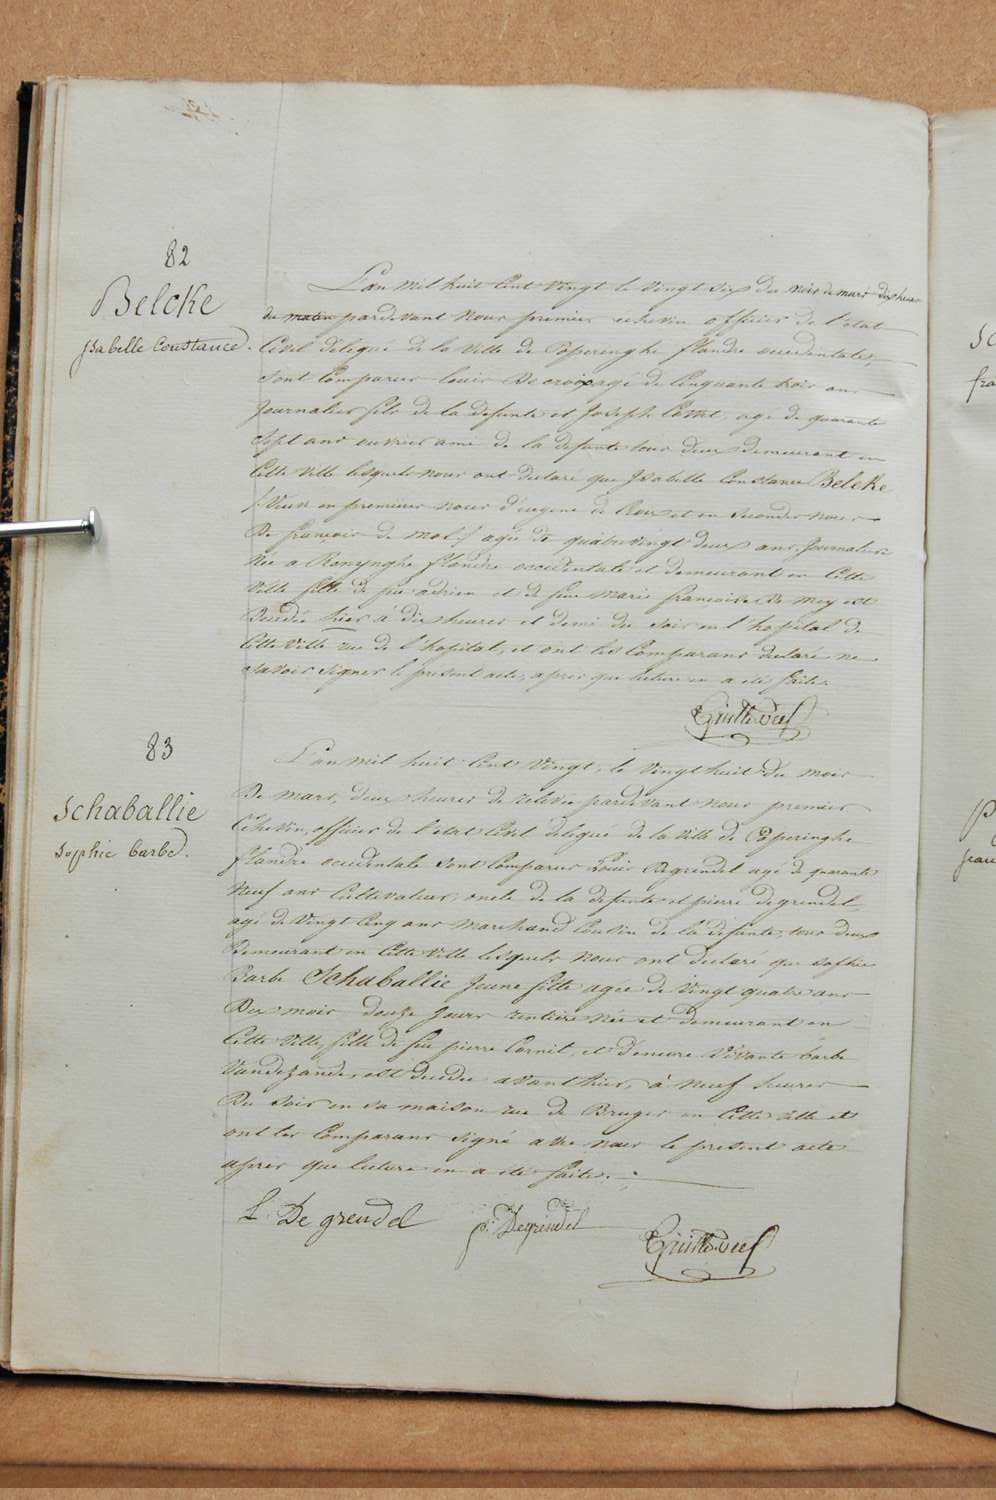 82
Belcke
Isabelle Constance.
L'an mil huit cent vingt le vingt six du mois de mars dix heures
du matin pardevant nous premier echevin officier de l'etat
Civil délegué de la ville de Poperinghe flandre occidentale,
sont Comparus louis Decroix agé de Cinquante trois ans
Journalier fils de la defunte et Joseph agé de quarante
Sept ans ouvrier ami de la defunte tous deux demeurant en
Cette ville lesquels nous ont declaré que Isabelle Constance Belcke
Veuve en premieres noces d'eugene de Roux et en Secondes noces
De francois de agée de quatre vingt deux ans, Journaliere
Née a Renynghe flandre occidentale et demeurant en Cette
Ville fille de feu adrien et de feue Marie francoise De mey est
Decédée hier à dix heures et demi du soir en l'hopital de
Cette Ville rue de l'hopital, et ont les Comparans declaré ne
savoir signer le présent acte, apres que lecture en a été faite.
83
Schaballie
Sophie barbe.
L'an mil huit Cent Vingt, le Vingt huit du mois
De mars, deux heures de relevée pardevant nous premier
Echevin, officier de l'etat Civil délegué de la ville de Poperinghe
flandre occidentale sont Comparus Louis Degrendel agé de quarante
Neuf ans Cultivateur, oncle de la defunte et pierre degrendel,
agé de Vingt Cinq ans Marchand Cousin de la defunte, tous deux
Demeurant en Cette Ville lesquels nous ont declaré que Sophie
Barbe Schaballie Jeune fille agée de Vingt quatre ans
Dix mois douze jours rentiere Née et demeurant en
Cette Ville, fille de feu pierre Cornil, et d'encore Vivante barbe
Vandezande, est decedée avant hier, à Neuf heures
Du Soir en sa maison rue de Bruges en Cette ville et
ont les Comparans Signé avec nous le present acte
apres que lecture en a été faite.
L. De grendel
p. Degrendel